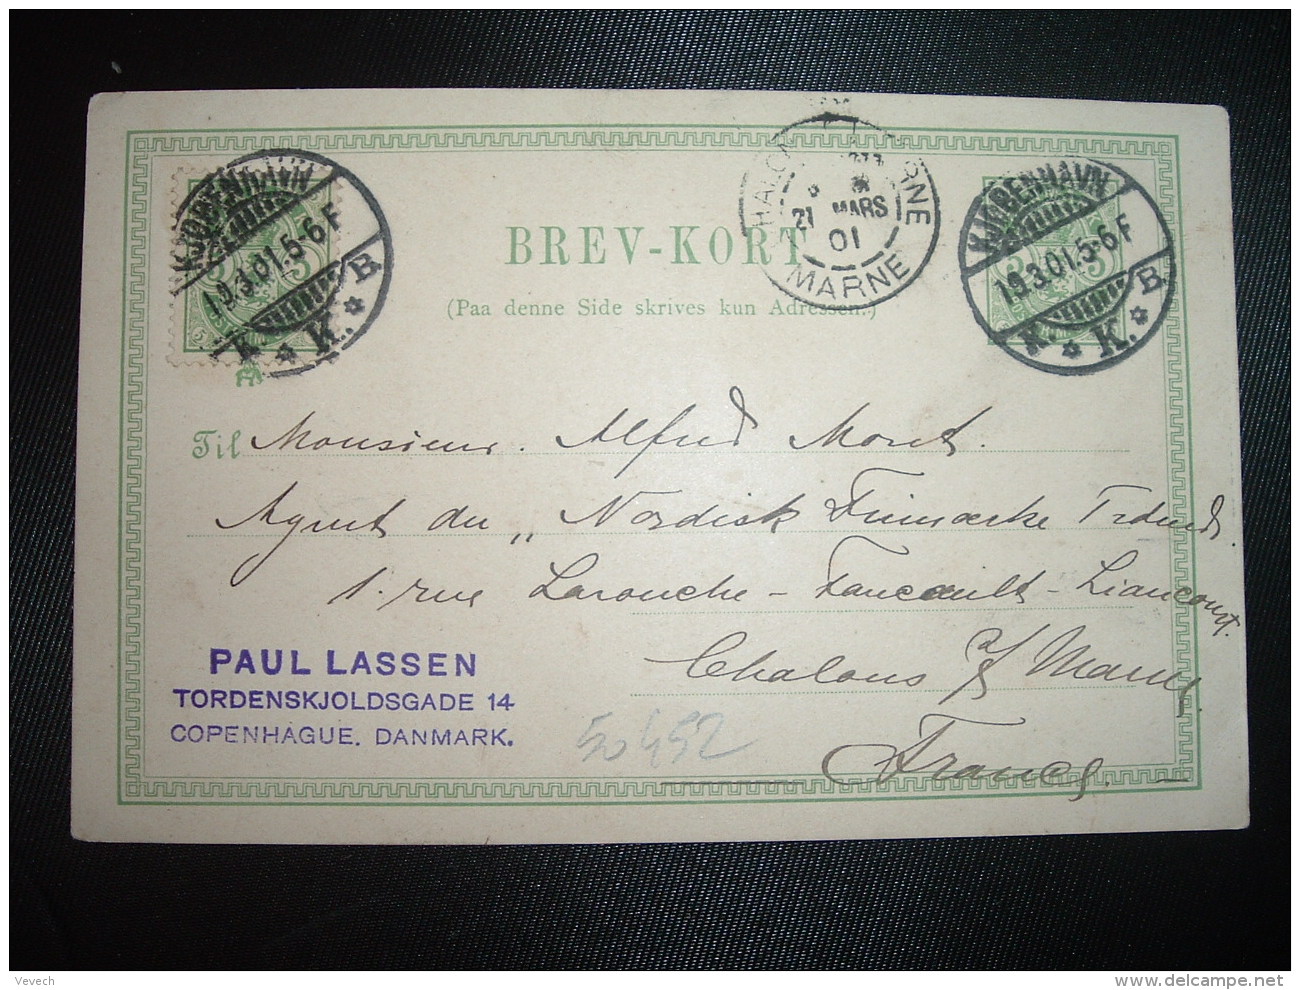 KJØBENHAVN
19.3.01.5-6F
K. K. B.
MARNE
21 MARS
01
KJØBENHAVN
19.3.01.5-6F
K. K. B.
BREV-KORT
(Paa denne Side skrives kun Adressen.)
Til Monsieur. Alfred Moret.
Agent du „Nordisk Frimærke Tidende.
1. rue Larouche-Foucault-Liancourt.
Chalons s/ Marne.
France.
PAUL LASSEN
TORDENSKJOLDSGADE 14
COPENHAGUE. DANMARK.
50452
Vevech
www.delcampe.net